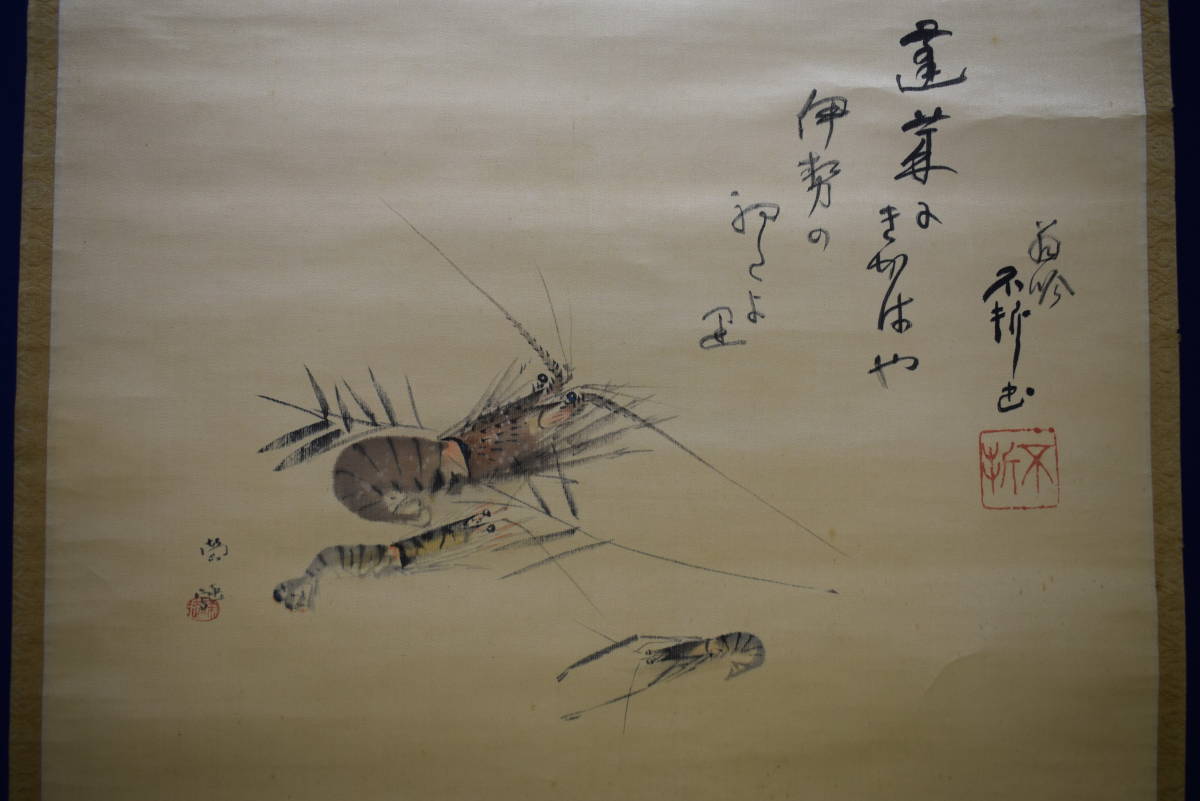 蓬莱に
きかはや
伊勢の
初たよ
里
翁吟
不折書
不折